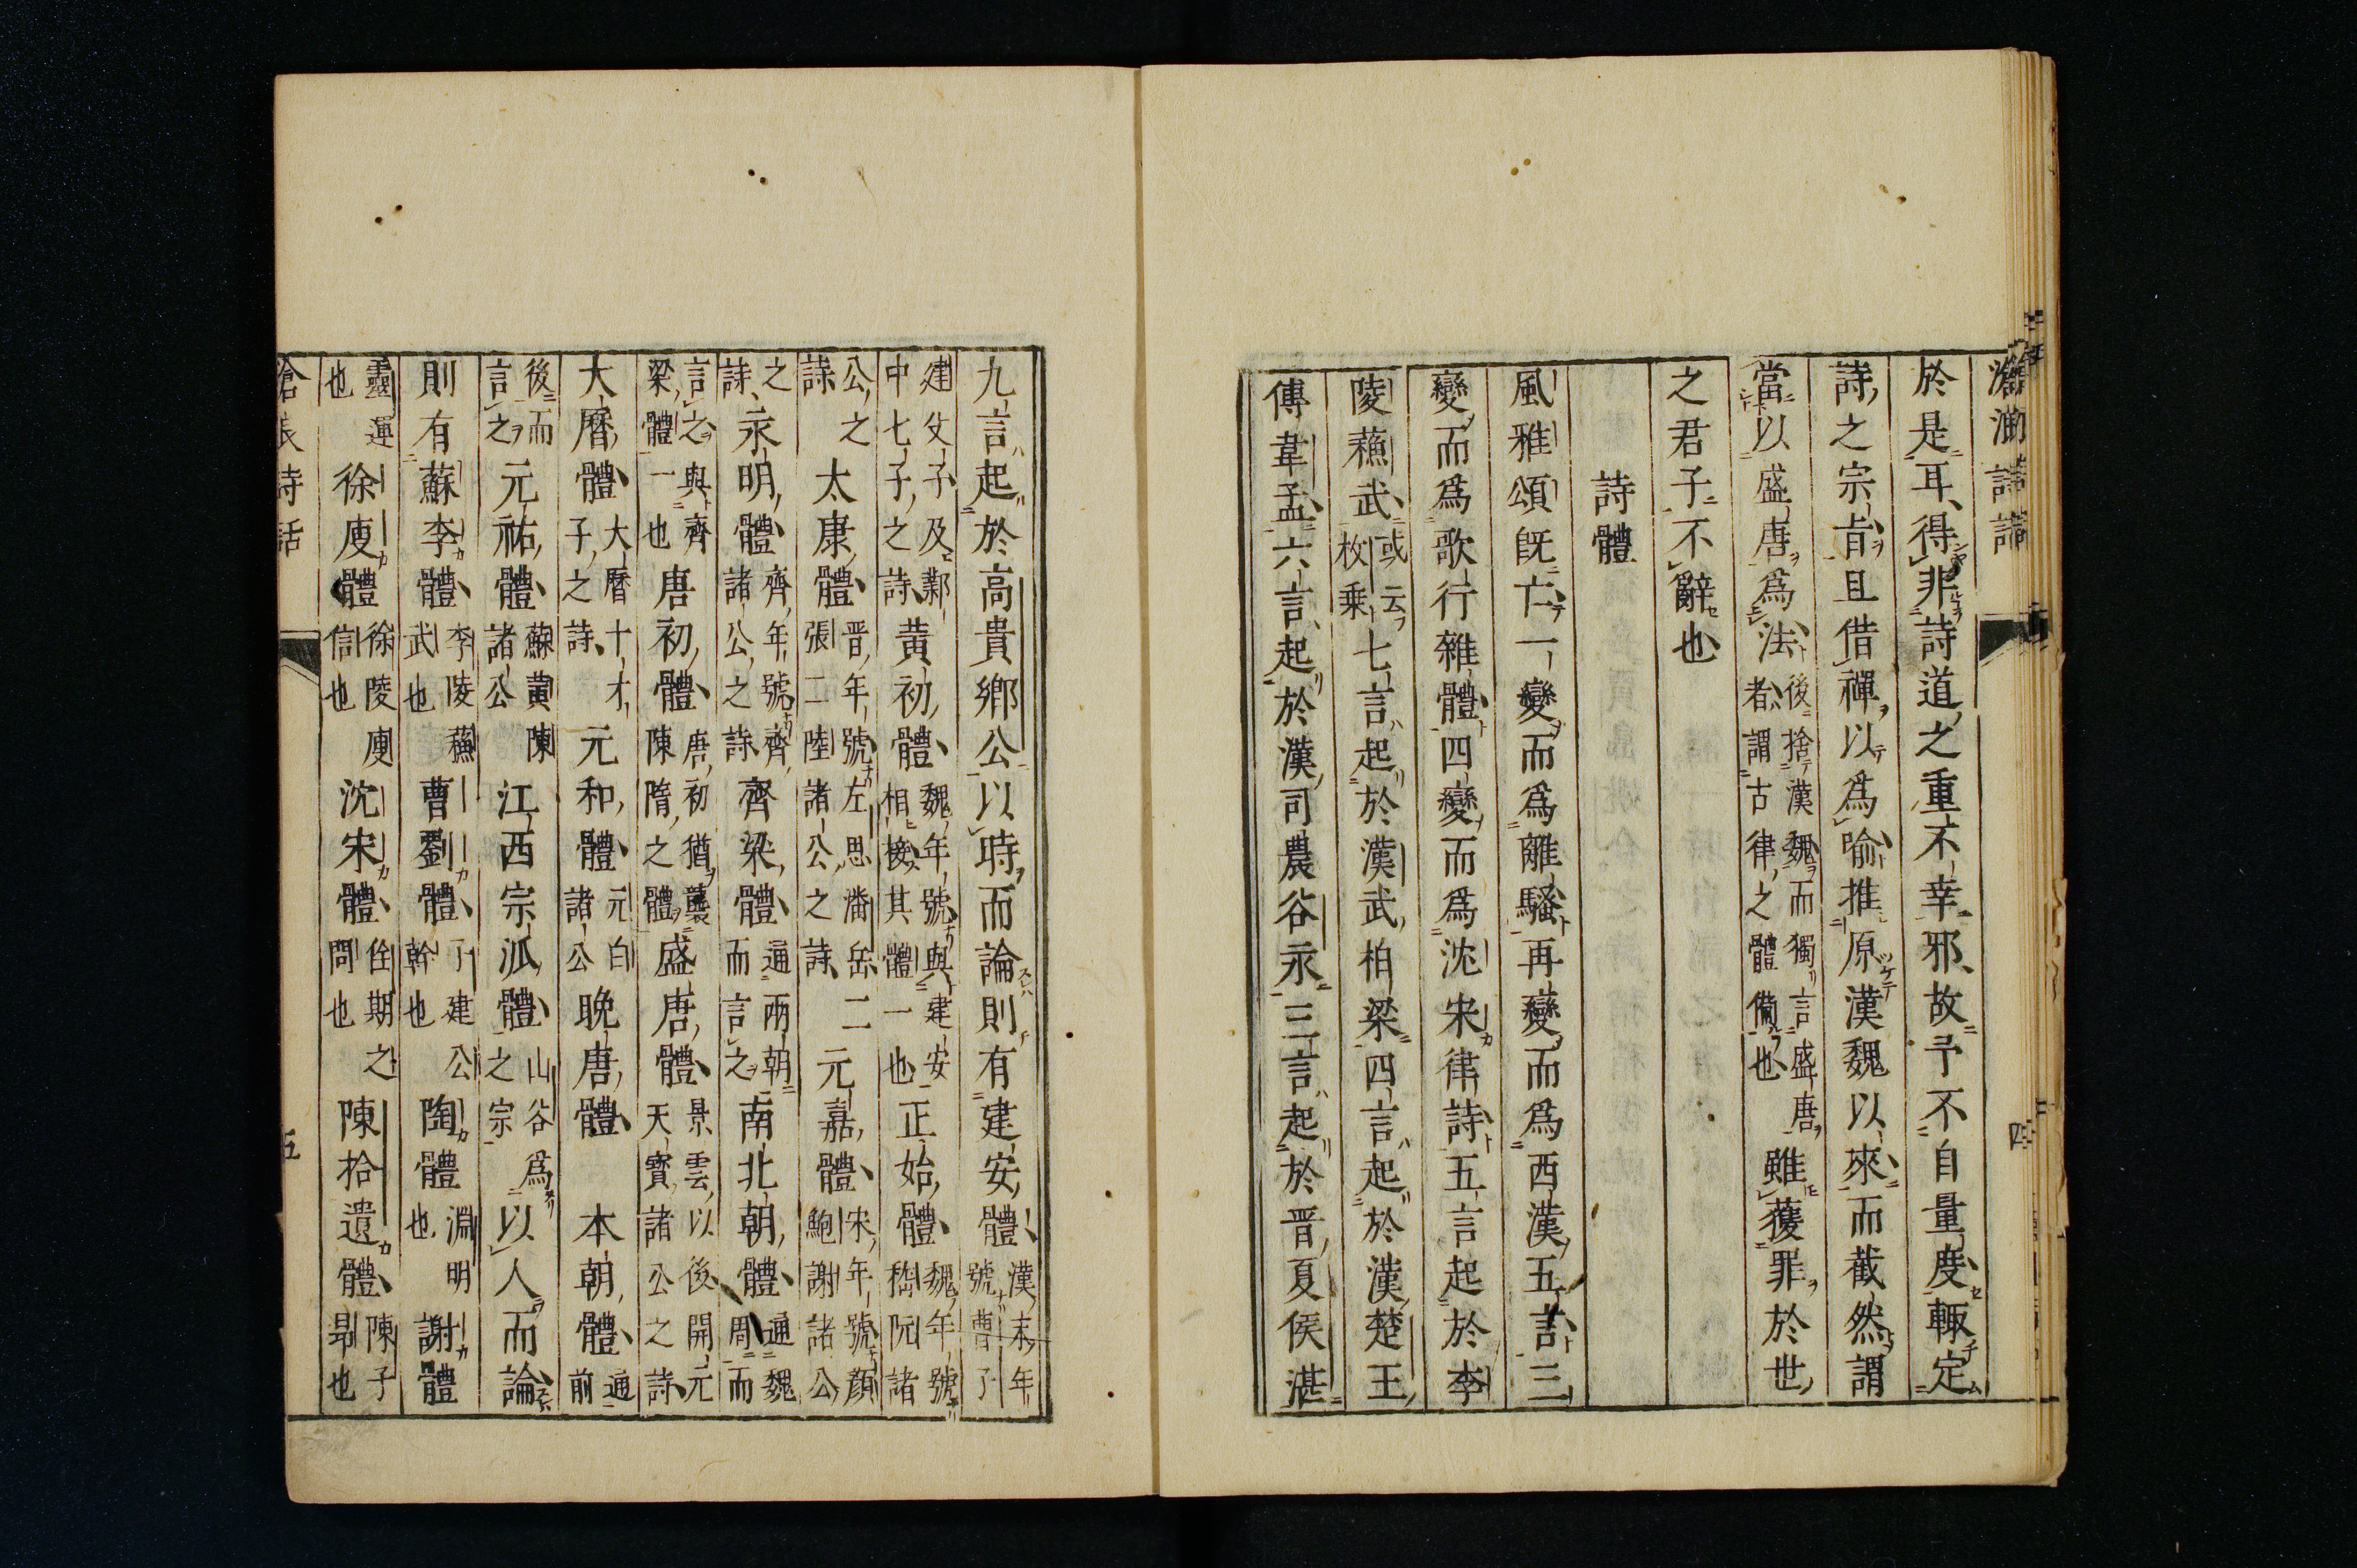 滄浪詩話
四
於是耳得非詩道之重不幸邪故予不自量度輒定
詩之宗旨且借禪以爲喻推原漢魏以來而截然謂
當以盛唐爲法後捨漢魏而獨言盛唐
者謂古律之體備也雖獲罪於世
之君子不辭也
詩體
風雅頌旣亡一變而爲離騷再變而爲西漢五言三
變而爲歌行雜體四變而爲沈宋律詩五言起於李
陵蘇武或云
枚乗七言起於漢武柏梁四言起於漢楚王
傅韋孟六言起於漢司農谷永三言起於晋夏侯湛
九言起於高貴鄉公以時而論則有建安體漢末年
號曹子
建父子及鄴
中七子之詩黄初體魏年號與建安
相接其體一也正始體魏年號
嵆阮諸
公之
詩太康體晋年號左思潘岳二
張二陸諸公之詩元嘉體宋年號顔
鮑謝諸公
之
詩永明體齊年號齊
諸公之詩齊梁體通兩朝
而言之南北朝體通魏
周而
言之與齊
梁體一也唐初體唐初猶襲
陳隋之體盛唐體景雲以後開元
天寶諸公之詩
大曆體大曆十才
子之詩元和體元白
諸公晚唐體本朝體通
前
後而
言之元祐體蘇黄陳
諸公江西宗派體山谷爲
之宗以人而論
則有蘇李體李陵蘇
武也曹劉體子建公
幹也陶體淵明
也謝體
靈運
也徐庾體徐陵庾
信也沈宋體佺期之
問也陳拾遺體陳子
昻也
滄浪詩話
五